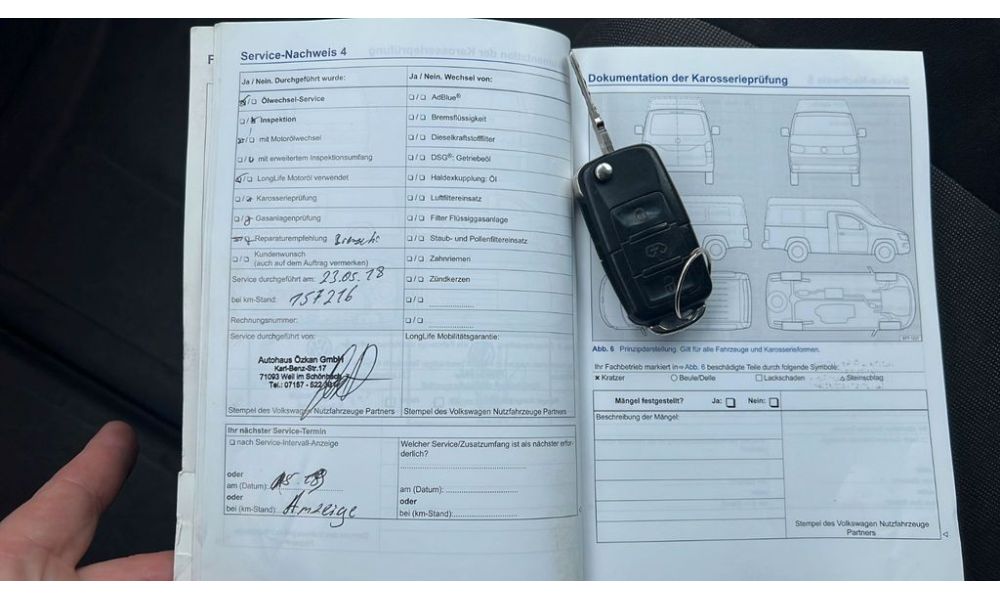 Service-Nachweis 4
Ja / Nein. Durchgeführt wurde:
Ja / Nein. Wechsel von:
Ölwechsel-Service
AdBlue®
Inspektion
Bremsflüssigkeit
mit Motorölwechsel
Dieselkraftstofffilter
mit erweitertem Inspektionsumfang
DSG®: Getriebeöl
LongLife Motoröl verwendet
Haldexkupplung: Öl
Karosserieprüfung
Luftfiltereinsatz
Gasanlagenprüfung
Filter Flüssiggasanlage
Reparaturempfehlung
Staub- und Pollenfiltereinsatz
Kundenwunsch
(auch auf dem Auftrag vermerken)
Zahnriemen
Service durchgeführt am: 23.05.18
Zündkerzen
bei km-Stand: 157216
Rechnungsnummer:
Service durchgeführt von:
LongLife Mobilitätsgarantie:
Autohaus Özkan GmbH
Karl-Benz-Str.17
71093 Weil im Schönbuch
Tel.: 07157 - 522
Stempel des Volkswagen Nutzfahrzeuge Partners
Stempel des Volkswagen Nutzfahrzeuge Partners
Ihr nächster Service-Termin
nach Service-Intervall-Anzeige
Welcher Service/Zusatzumfang ist als nächster erfor-
derlich?
oder
am (Datum):
am (Datum):
oder
oder
bei (km-Stand): Anzeige
bei (km-Stand):
Dokumentation der Karosserieprüfung
Abb. 6 Prinzipdarstellung: Gilt für alle Fahrzeuge und Karosserieformen.
Ihr Fachbetrieb markiert in ⇒ Abb. 6 beschädigte Teile durch folgende Symbole:
Kratzer
Beule/Delle
Lackschaden
Steinschlag
Mängel festgestellt? Ja: Nein:
Beschreibung der Mängel:
Stempel des Volkswagen Nutzfahrzeuge
Partners